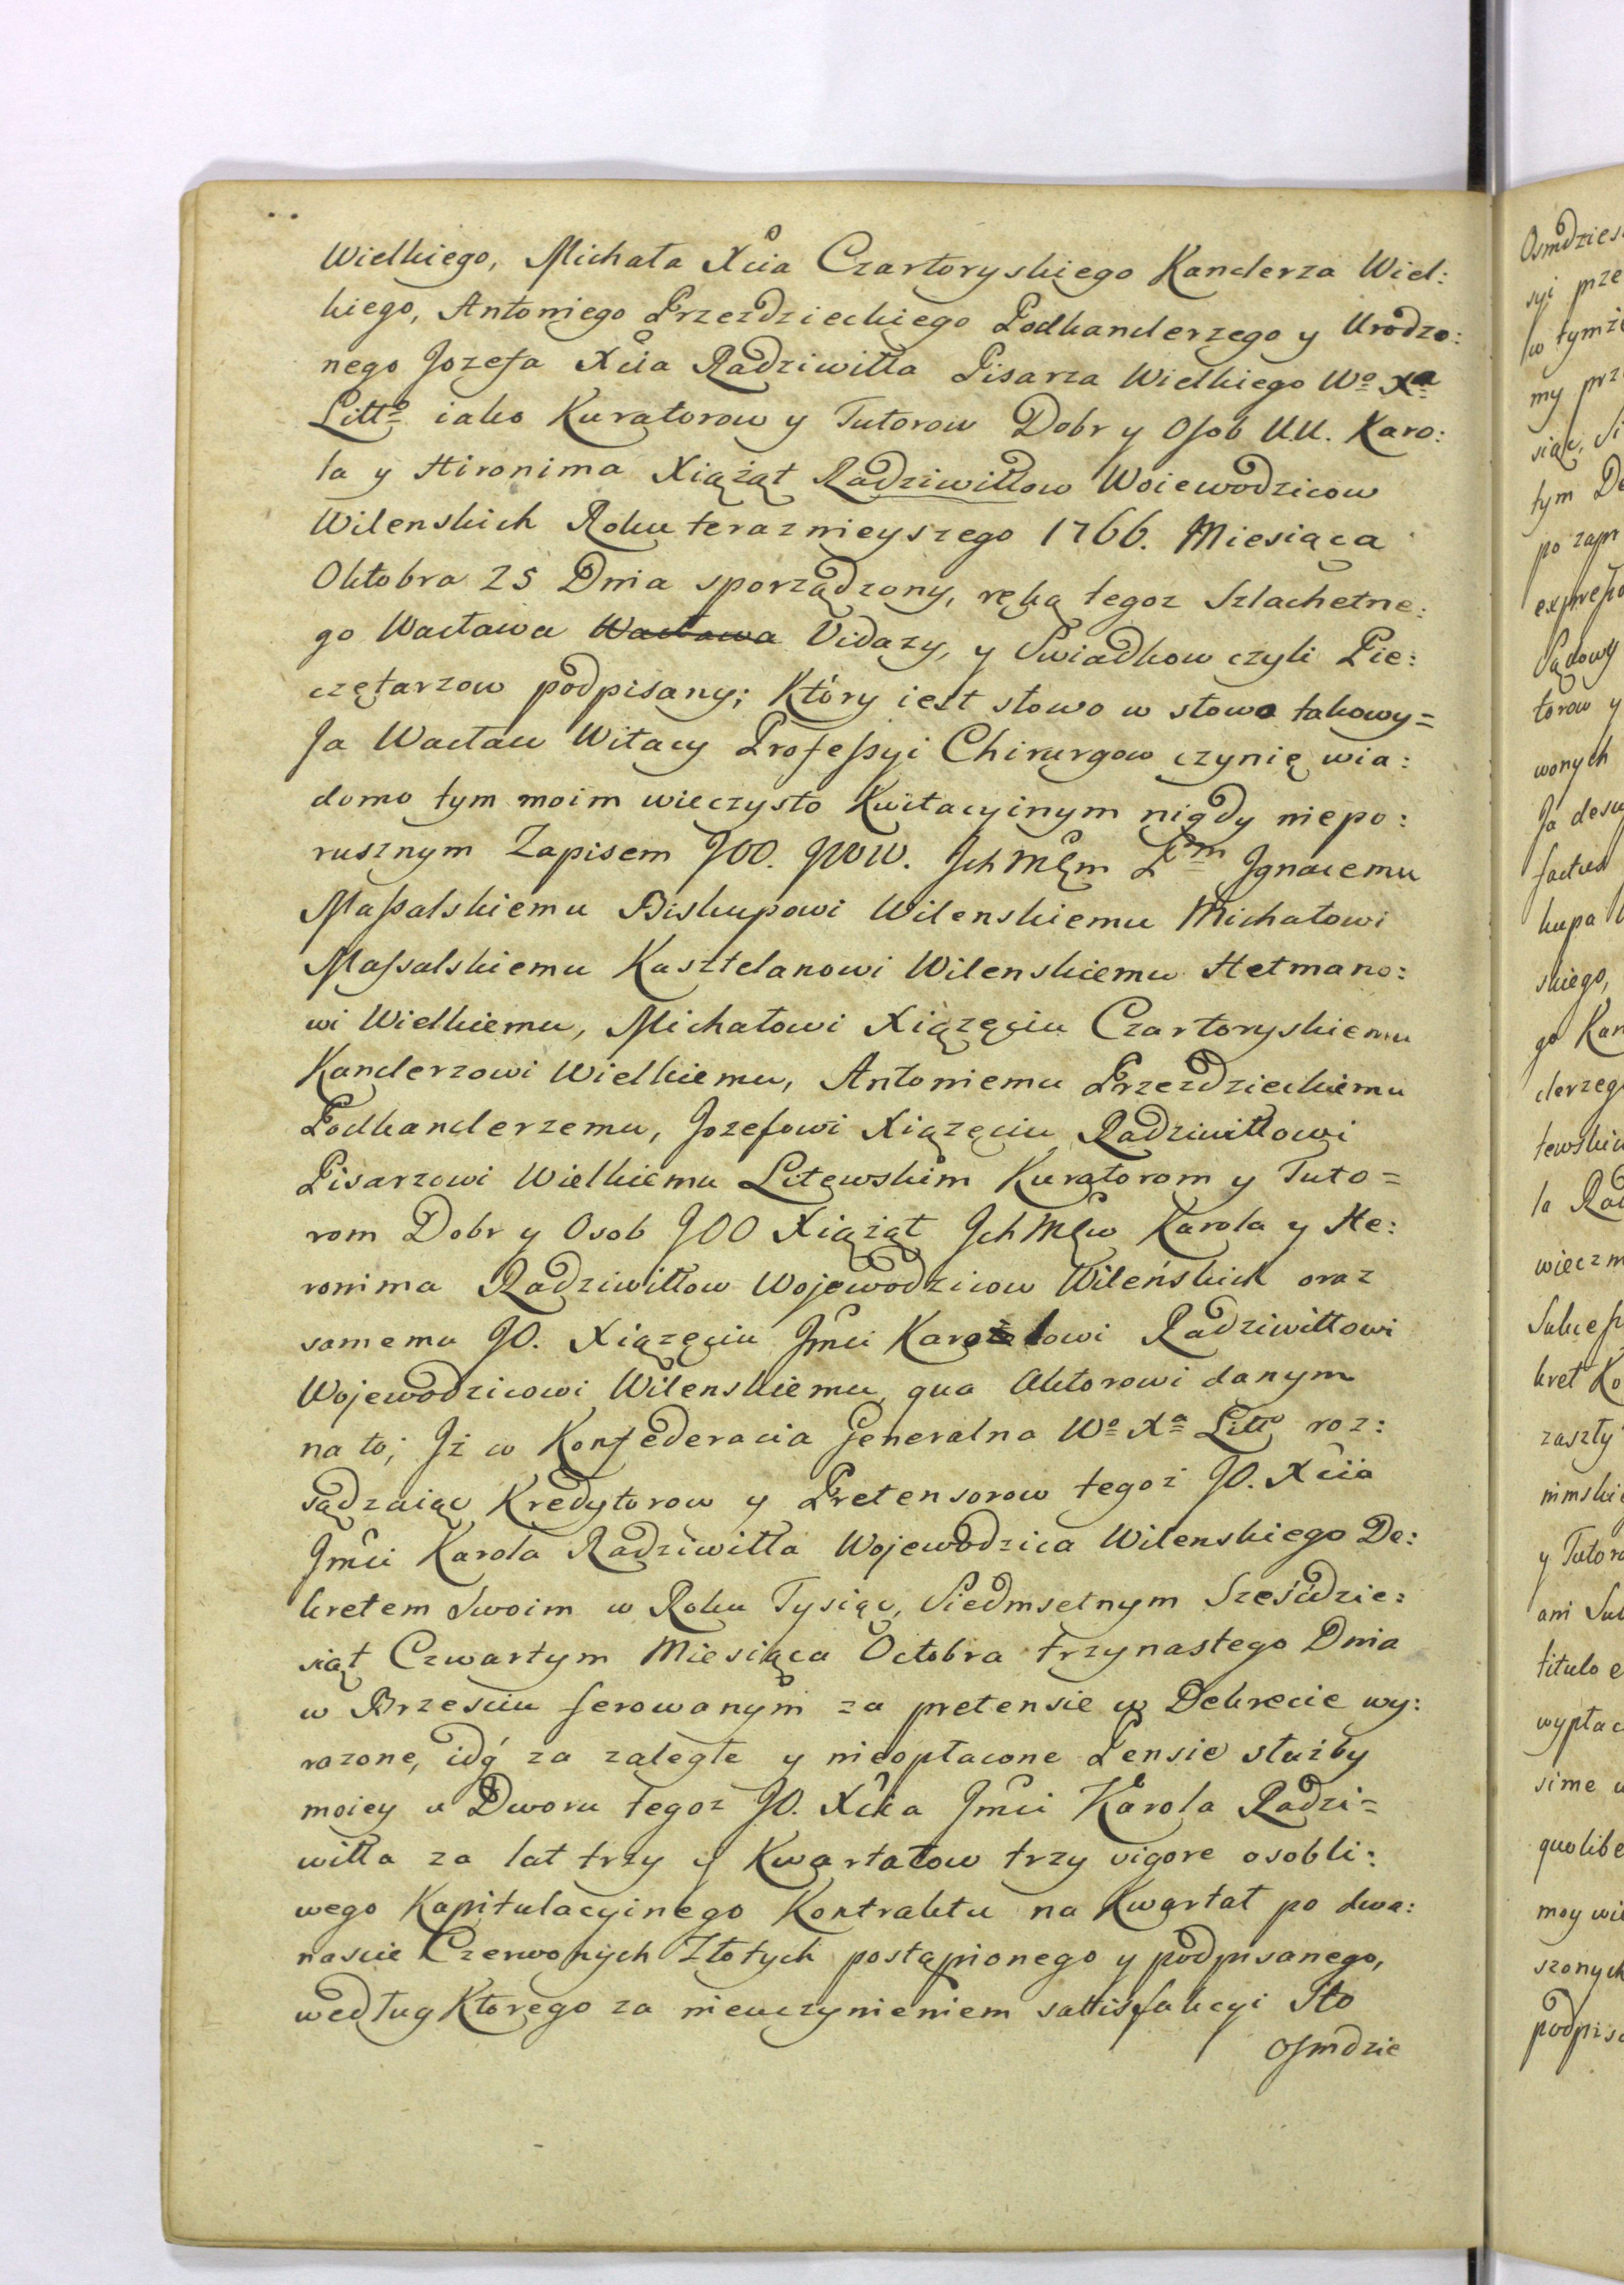 Wielkiego, Michała Xcia Czartoryskiego Kanclerza Wiel:
kiego, Antoniego Przezdzieckiego Podkanclerzego y Urodzo:
nego Jozefa Xcia Radziwiłła Pisarza Wielkiego Wo Xa
Litto iako Kuratorow y Tutorow Dobr y Osob UU. Karo:
la y Hironima Xiążąt Radziwiłłow Woiewodzicow
Wilenskich Roku teraznieyszego 1766. Miesiąca
Oktobra 25 Dnia sporządzony, ręką tegoz Szlachetne:
go Wacława Wacława Vidazy, y Swiadkow czyli Pie:
czętarzow podpisany; Który iest słowo w słowo takowy=
Ja Wacław Witacy Professyi Chirurgow czynię wia:
domo tym moim wieczysto Kwitacyinym nigdy niepo:
rusznym Zapisem JOO. JWW. Jch Mcm Pm Jgnacemu
Massalskiemu Biskupowi Wilenskiemu Michałowi
Massalskiemu Kasztelanowi Wilenskiemu Hetmano:
wi Wielkiemu, Michałowi Xiązęciu Czartoryskiemu
Kanclerzowi Wielkiemu, Antoniemu Przezdzieckiemu
Podkanclerzemu, Jozefowi Xiązęciu Radziwiłłowi
Pisarzowi Wielkiemu Litewskim Kuratorom y Tuto=
rom Dobr y Osob JOO Xiążąt Jch Mcw Karola y He:
ronima Radziwiłłow Wojewodzicow Wileńskich oraz
samemu JO. Xiązęciu Jmci Karolowi Radziwiłłowi
Wojewodzicowi Wilenskiemu qua Aktorowi danym
na to; Jż w Konfederacia Generalna Wo Xa Litto roz:
sądzaiąc Kredytorow y Pretensorow tegoż JO. Xcia
Jmci Karola Radziwiłła Wojewodzica Wilenskiego De:
kretem Swoim w Roku Tysiąc, Siedmsetnym Sześćdzie:
siąt Czwartym Miesiąca Octobra trzynastego Dnia
w Brzesciu ferowanym za pretensie w Dekrecie wy:
razone, idq za zaległe y nieopłacone Pensie służby
moiey u Dworu tegoz JO. Xcia Jmci Karola Radzi=
wiłła za lat trzy y Kwartałow trzy vigore osobli:
wego Kapitulacyinego Kontraktu na Kwartał po dwa:
nascie Czerwonych Złotych postąpionego y podpisanego,
według Ktorego za nieuczynieniem sattisfakcyi Sto
Osmdzie